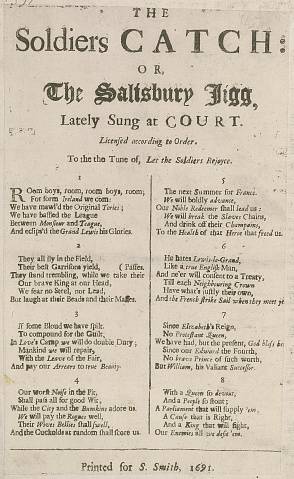 THE
Soldiers CATCH:
OR,
The Saltsbury Jigg,
Lately Sung at COURT.
Licensed according to Order.
To the the Tune of, Let the Soldiers Rejoyce.
1
ROom boys, room, room boys, room;
For form Ireland we com:
We have mawl'd the Original Tories;
We have baffled the League
Between Monsieur and Teague,
And eclips'd the Grand Lewis his Glories.
2
They all fly in the Field,
Their best Garrisons yield, (Passes.
They stand trembling, while we take their
Our brave King at our Head,
We fear no Steel, nor Lead,
But laugh at their Beads and their Masses.
3
If some Blood we have spilt,
To compound for the Guilt,
In Love's Camp we will do double Duty;
Mankind we will repair,
With the Leave of the Fair,
And pay our Arrears to true Beauty.
4
Our worst Noise in the Pit,
Shall pass all for good Wit,
While the City and the Bumkins adore us.
We will pay the Rogues well,
Their Wives Bellies shall swell,
And the Cuckolds at random shall score us.
5
The next Summer for France.
We will boldly advance,
Our Noble Redeemer shall lead us:
We will break the Slaves Chains,
And drink off their Champains,
To the Health of that Hero that freed us.
6
He hates Lewis-le-Grand,
Like a true English Man,
And ne'er will consent to a Treaty,
Till each Neighbouring Crown
Have what's justly their own,
And the French strike Sail when they meet ye
7
Since Elizabeth's Reign,
No Protestant Queen,
We have had, but the present, God bless
Since our Edward the Fourth,
No brave Prince of such worth,
But William, his Valiant Successor.
8
With a Queen so devout,
And a People so stout;
A Parliament that will supply 'em,
A Cause that is Right,
And a King that will fight,
Our Enemies all we defie 'em.
Printed for S. Smith, 1691.